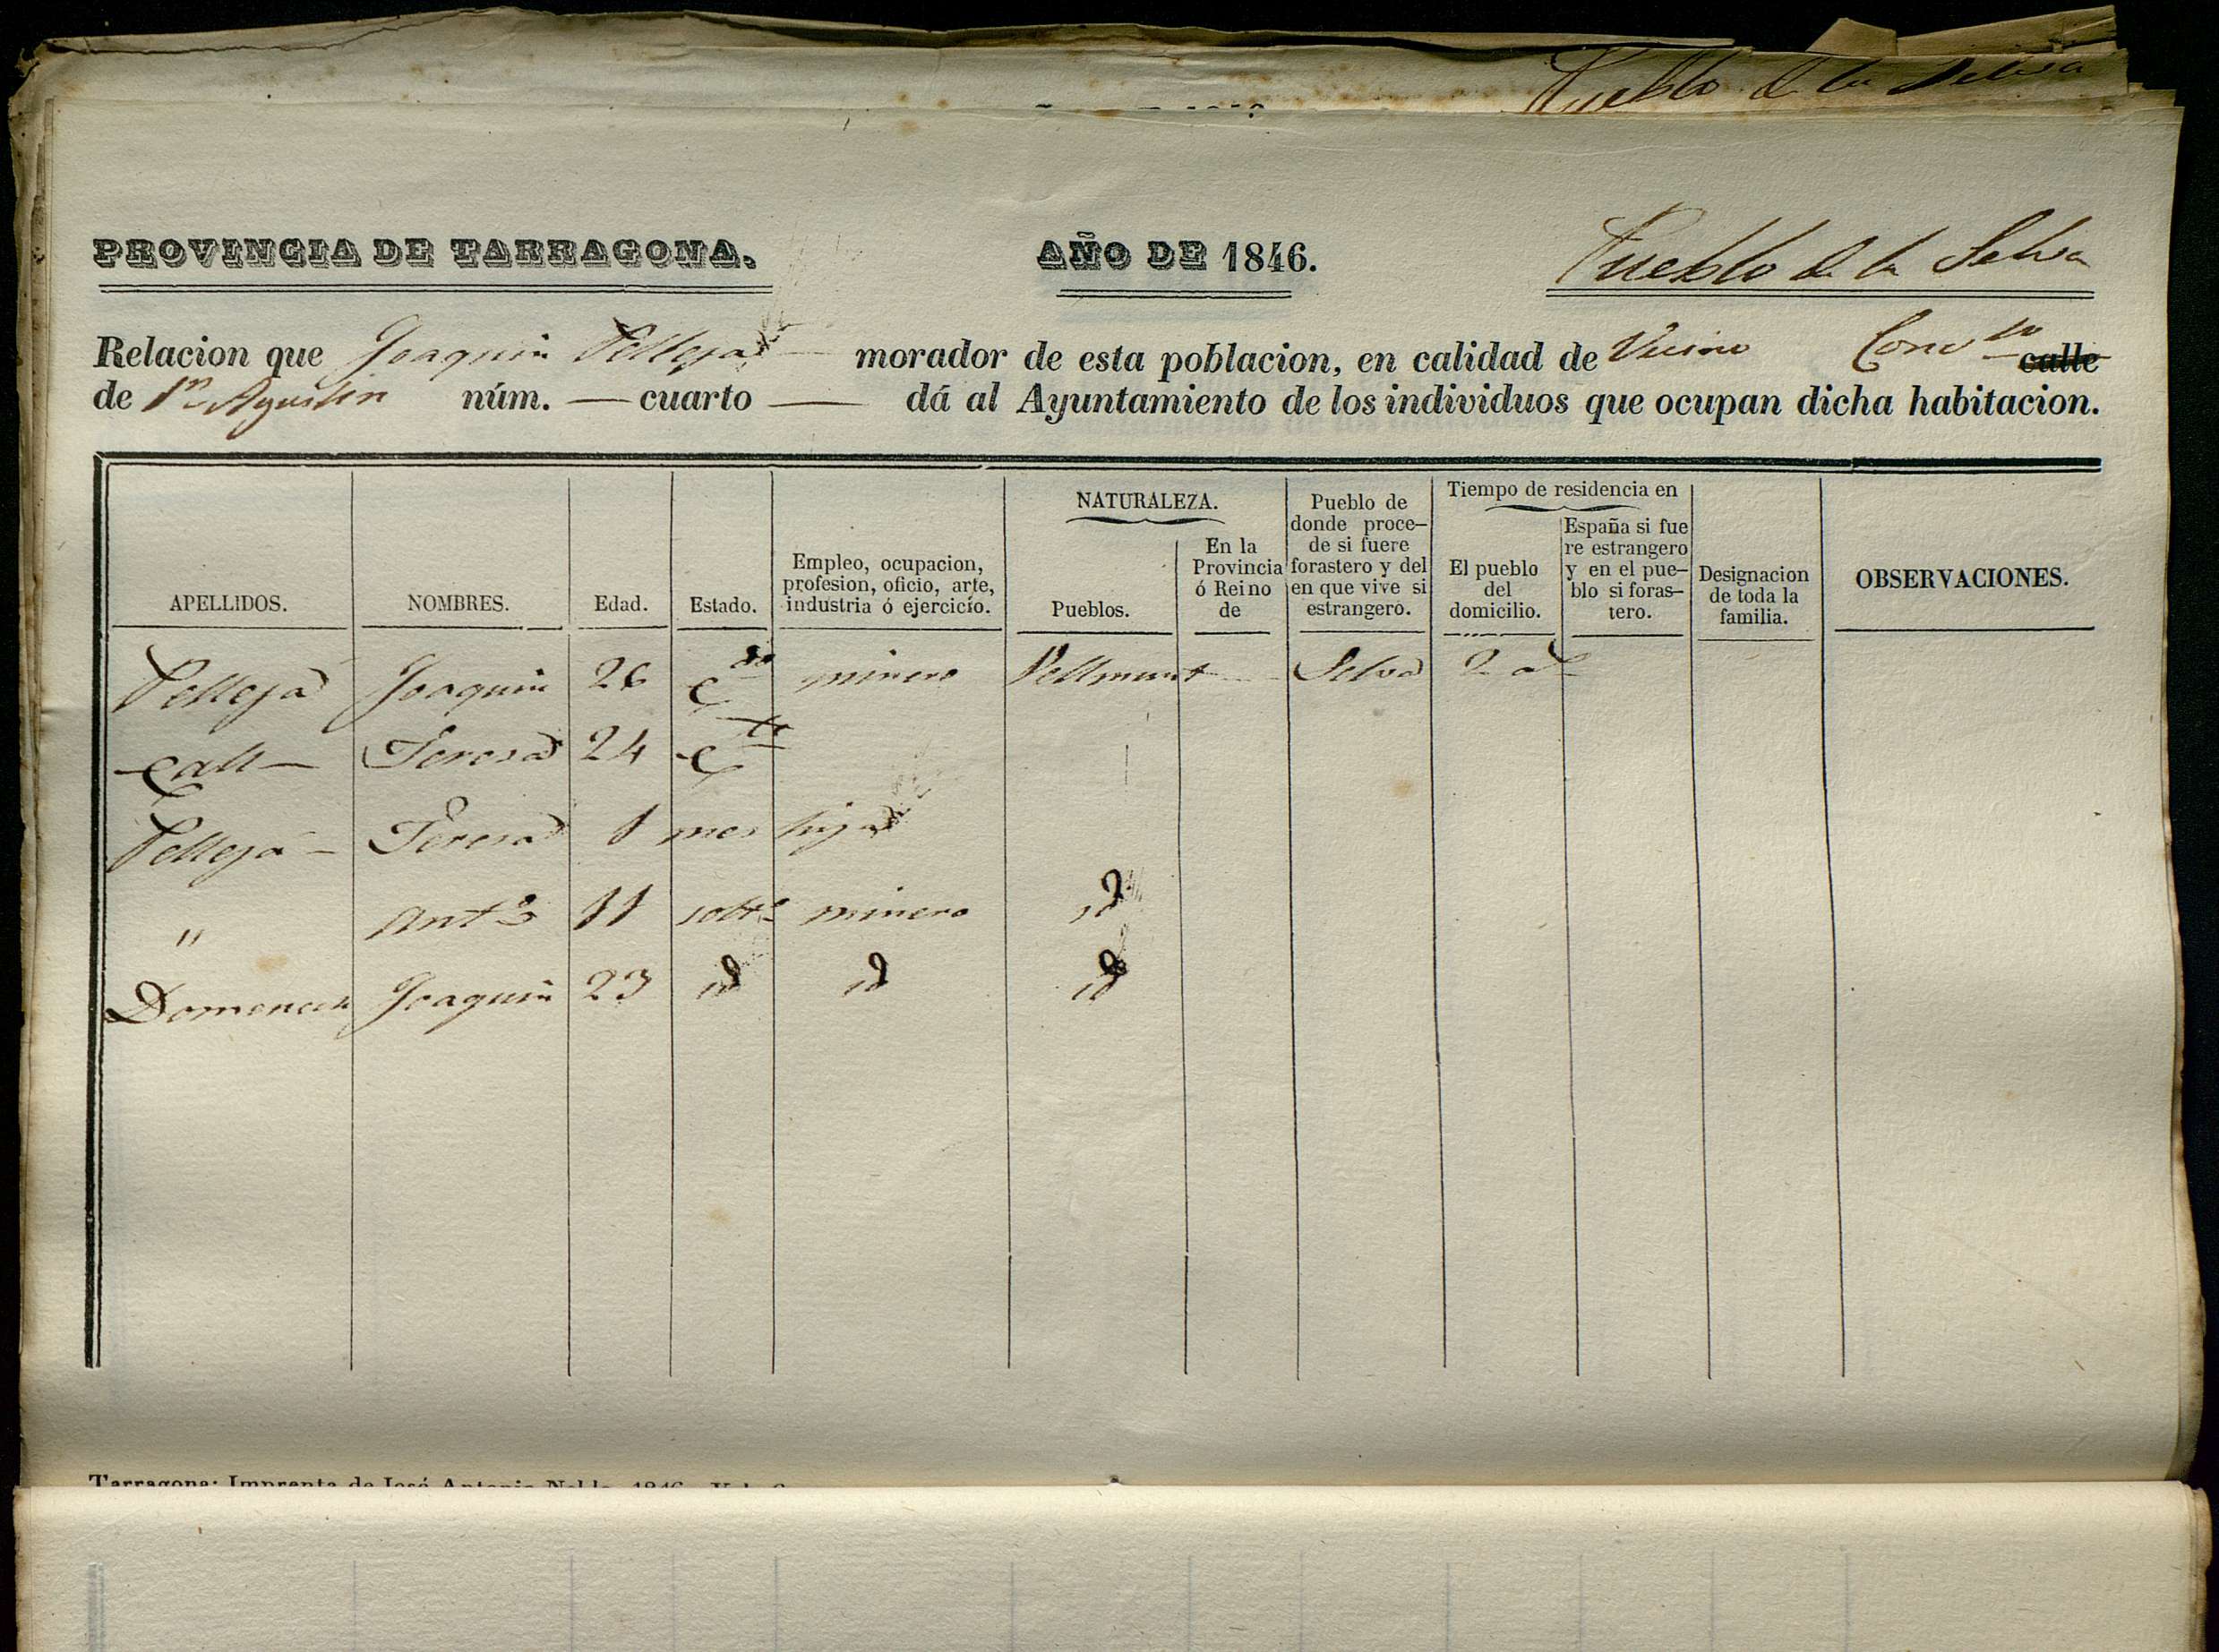 Pueblo de la Selva
PROVINCIA DE TARRAGONA. AÑO DE 1846. Pueblo de la Selva
Relacion que Joaquin Pellejá morador de esta poblacion, en calidad de Vecino Convto calle
de Sn Agustin núm. — cuarto — dá al Ayuntamiento de los individuos que ocupan dicha habitacion.
APELLIDOS. NOMBRES. Edad. Estado. Empleo, ocupacion, profesion, oficio, arte, industria ó ejercicío. NATURALEZA. Pueblos. En la Provincia ó Reino de Pueblo de donde proce- de si fuere forastero y del en que vive si estrangero. Tiempo de residencia en El pueblo del domicilio. España si fue re estrangero y en el pue- blo si foras- tero. Designacion de toda la familia. OBSERVACIONES.
Pellejá Joaquin 26 cdo minero Bellmunt Selva 2 as
Call Teresa 24 cte
Pellejá Teresa 1 mes hija
" Anto 11 solto minero id
Domenech Joaquin 23 id id id
Tarragona: Imprenta de José Antonio Nel·lo 1846